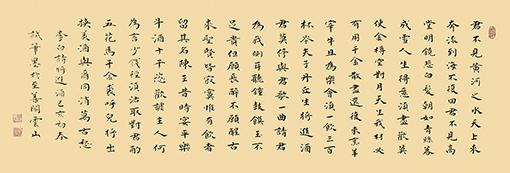 君不見黃河之水天上來
奔流到海不復回君不見高
堂明鏡悲白髮朝如青絲暮
成雪人生得意須盡歡莫
使金樽空對月天生我材必
有用千金散盡還復來烹羊
宰牛且為樂會須一飲三百
杯岑夫子丹丘生將進酒
君莫停與君歌一曲請君
為我側耳聽鐘鼓饌玉不
足貴但願長醉不願醒古
來聖賢皆寂寞惟有飲者
留其名陳王昔時宴平樂
斗酒十千恣歡謔主人何
為言少錢徑須沽取對君酌
五花馬千金裘呼兒將出
換美酒與爾同消萬古愁
李白詩將進酒己亥初春
試筆墨於至善閣雲山